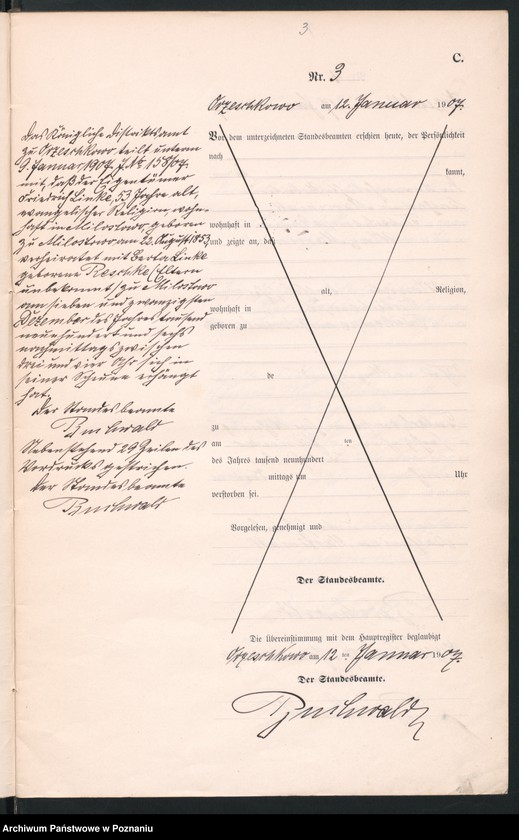 3
C.
Nr. 3
Orzeschkowo am 12. Januar 1907.
Das Königliche Distriktsamt
zu Orzeschkowo teilt unterm
9. Januar 1907. J.№ 158/07.
mit, daß der Eigentümer
Friedrich Linke, 53 Jahre alt,
evangelischer Religion, wohn-
haft in Milostowo, geboren
zu Milostowo am 22. August 1853
verheiratet mit Berta Linke
geborene Reschke (Eltern
unbekannt) zu Milostowo
am sieben und zwanzigsten
Dezember des Jahres tausend
neunhundert und sechs
nachmittags zwischen
drei und vier Uhr sich in
seiner Scheune erhängt
hat.
Der Standesbeamte
Buchwald
Nebenstehend 29 Zeilen des
Vordrucks gestrichen.
Der Standesbeamte
Buchwald
Vor dem unterzeichneten Standesbeamten erschien heute, der Persönlichkeit
nach
kannt,
wohnhaft in
und zeigte an, daß
alt, Religion,
wohnhaft in
geboren zu
de
zu
am um
des Jahres tausend neunhundert
mittags um Uhr
verstorben sei.
Vorgelesen, genehmigt und
Der Standesbeamte.
Die Übereinstimmung mit dem Hauptregister beglaubigt
Orzeschkowo am 12 ten Januar 1907.
Der Standesbeamte.
Buchwald
Archiwum Państwowe w Poznaniu